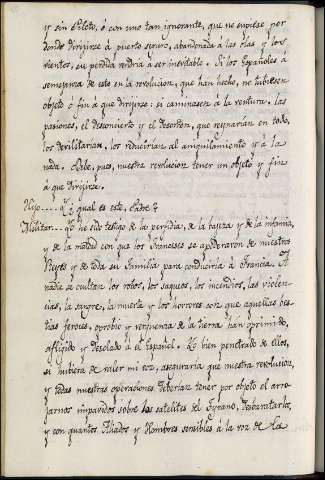 y sin Piloto, ó con uno tan ignorante, que no supiese por
donde dirijirse á puerto seguro, abandonada á las olas y los
vientos, su perdida vendria á ser inevitable. Si los Españoles á
semejanza de esto en la revolucion, que han hecho, no tubiesen
objeto ó fin á que dirijirse: si caminasen á la ventura, las
pasiones, el desconcierto y el desorden, que reynarian en todo,
los devilitarian, los reducirian al aniquilamiento y á la
nada. Debe, pues, nuestra revolucion tener un objeto y fin
á que dirijirse.
Hijo.... Y ¿qual es este, Padre?
Militar.... Yo he sido testigo de la perfidia, de la bajeza y de la infamia,
y de la maldad con que los Franceses se apoderaron de nuestros
Reyes y de toda su Familia para conducirla á Francia. A
nadie se ocultan los robos, los saqueos, los incendios, las violen-
cias, la sangre, la muerte y los horrores con que aquellas bes-
tias feroces, oprobio y verguenza de la tierra han oprimido,
afligido y desolado á el Español. Yo bien penetrado de ellos,
si hubiera de valer mi voz, aseguraria que nuestra revolucion,
y todas nuestras operaciones deberian tener por objeto el arro-
jarnos impavidos sobre los satelites del Tyrano, desbaratarlos,
y con quantos Aliados y Hombres sensibles á la voz de la